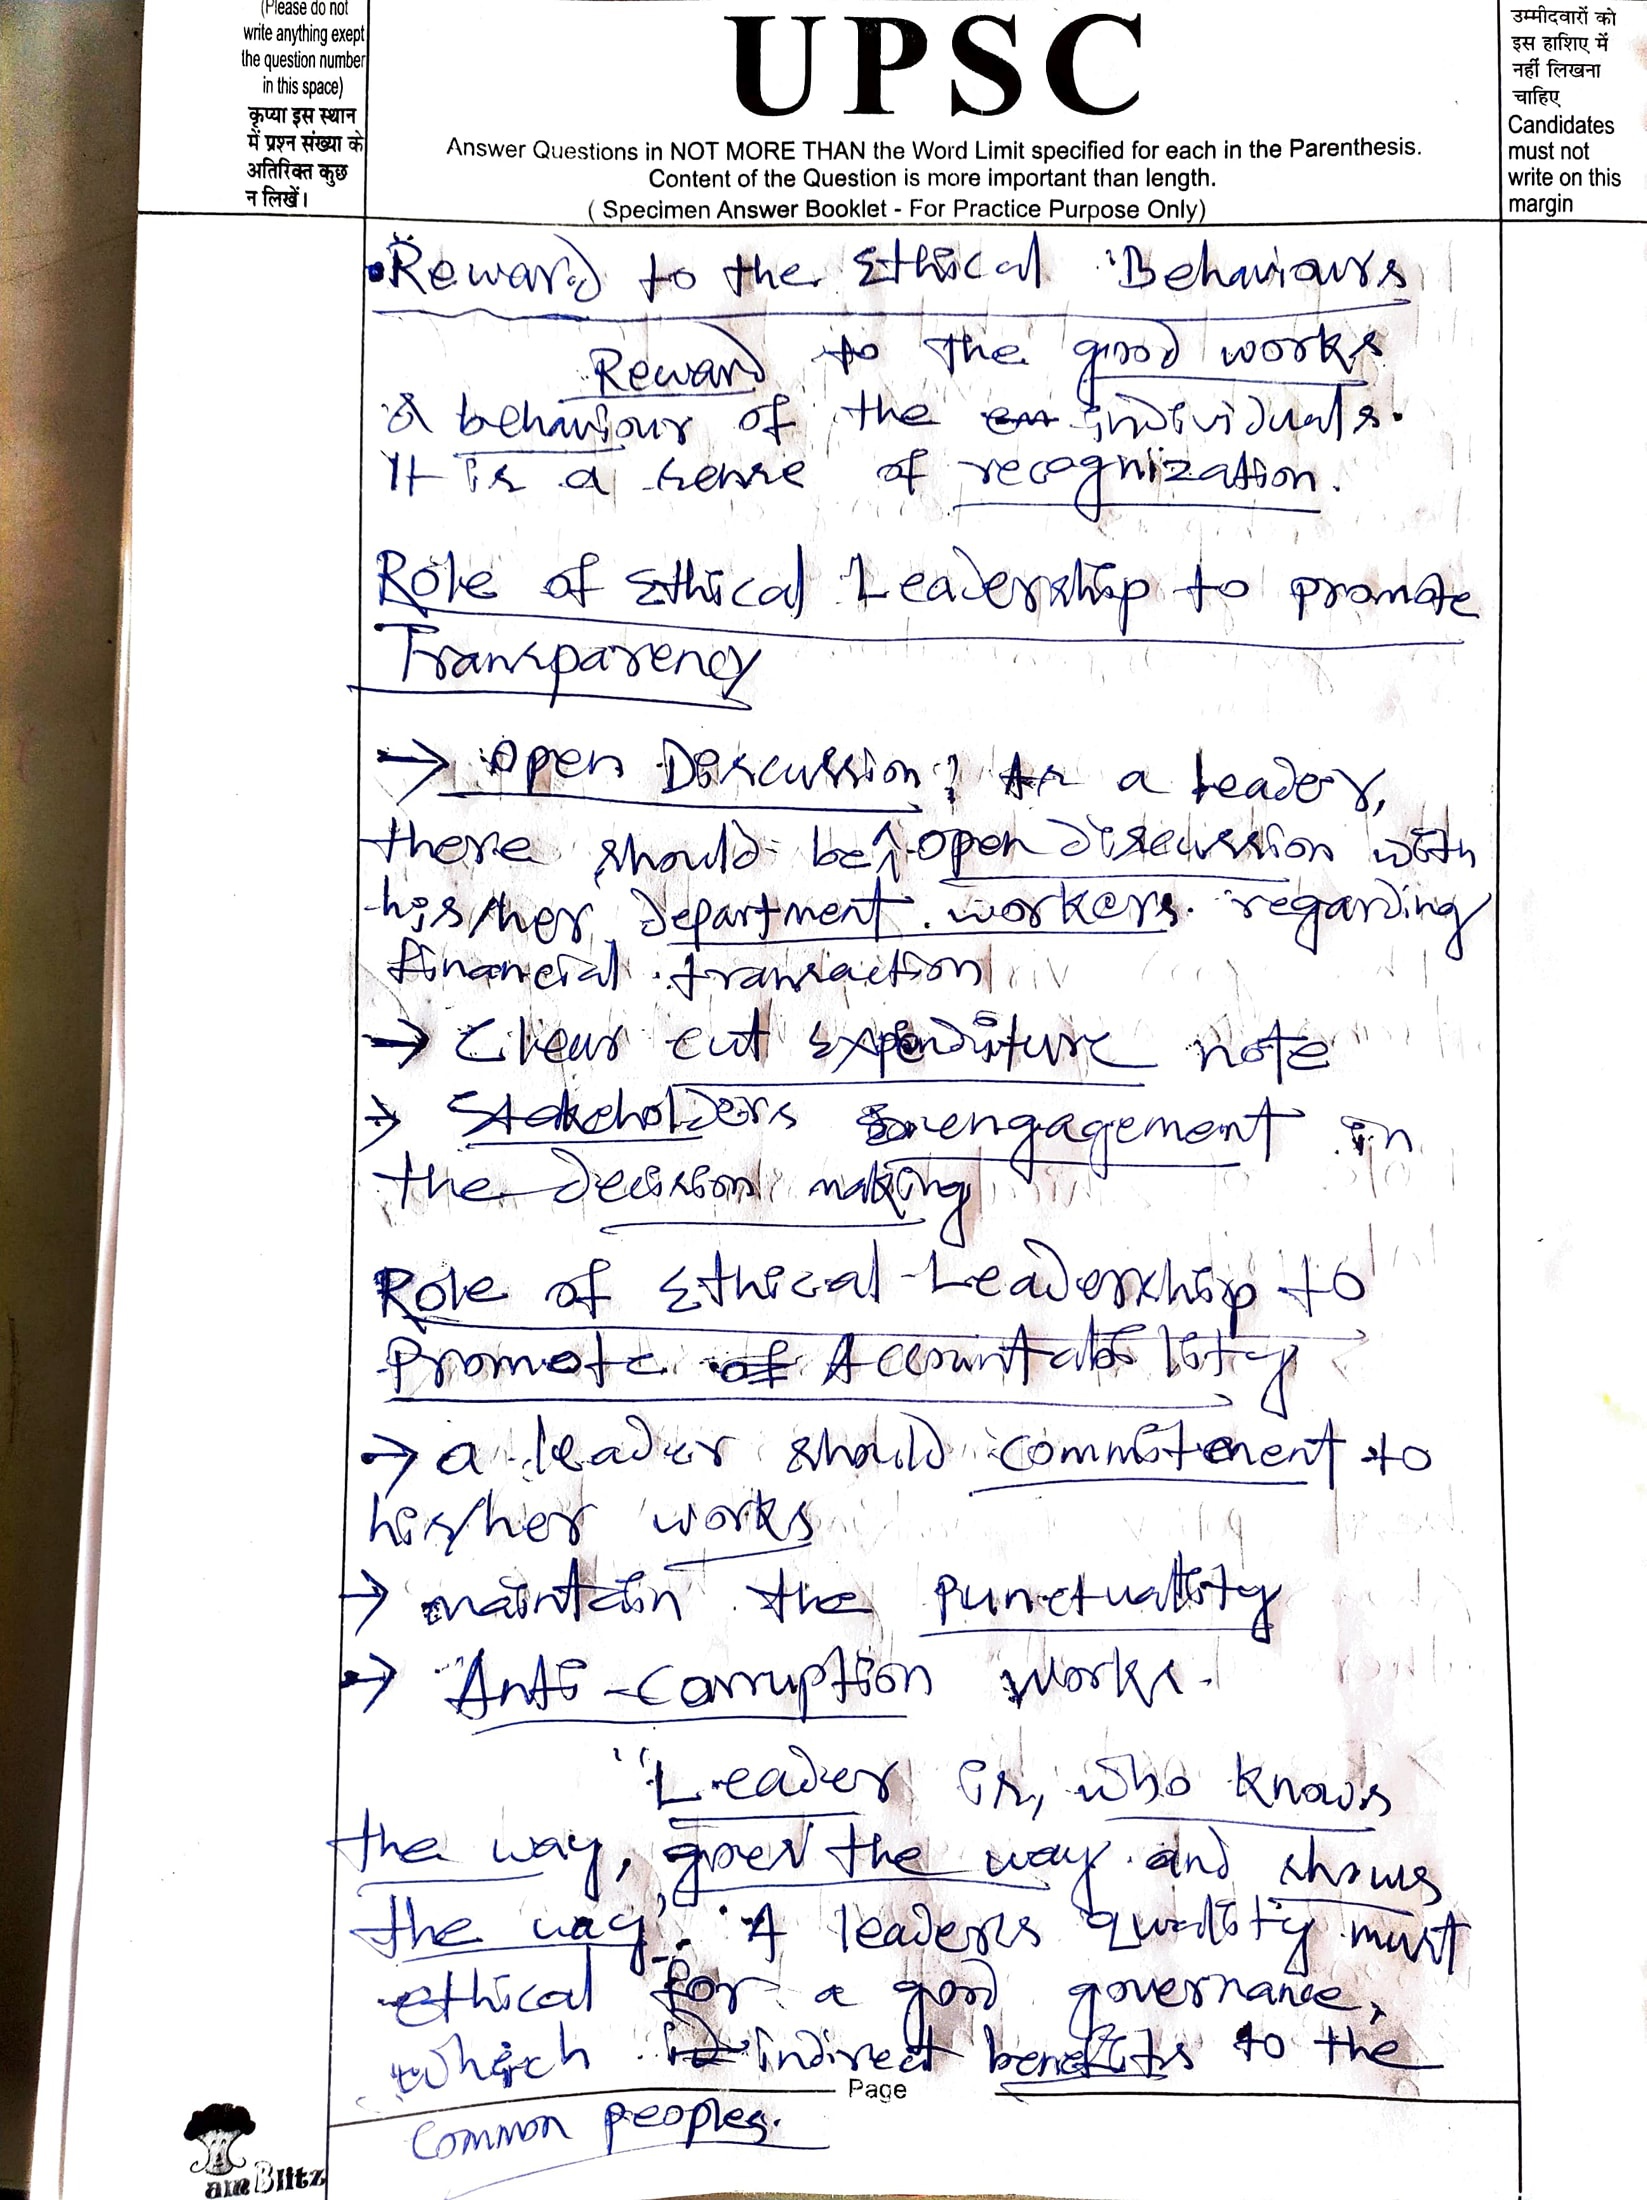 (Please do not
write anything exept
the question number
in this space)
कृप्या इस स्थान
में प्रश्न संख्या के
अतिरिक्त कुछ
न लिखें।
UPSC
Answer Questions in NOT MORE THAN the Word Limit specified for each in the Parenthesis.
Content of the Question is more important than length.
( Specimen Answer Booklet - For Practice Purpose Only)
उम्मीदवारों को
इस हाशिए में
नहीं लिखना
चाहिए
Candidates
must not
write on this
margin
• Reward to the Ethical Behaviours
Reward to the good works
& behaviour of the individuals.
It is a sense of recognization.
Role of Ethical Leadership to promote
Transparency
→ Open Discussion: As a leader,
there should be open discussion with
his/her department workers regarding
financial transaction
→ Clear cut Expenditure note
→ Stakeholders engagement in
the decision making
Role of Ethical Leadership to
Promote of Accountability
→ a leader should commitement to
his/her works
→ maintain the punctuality
→ Anti-corruption works.
"Leader is, who knows
the way, goes the way and shows
the way". A leaders quality must
ethical for a good governance,
which indirect benefits to the
Page
common peoples.
am Blitz